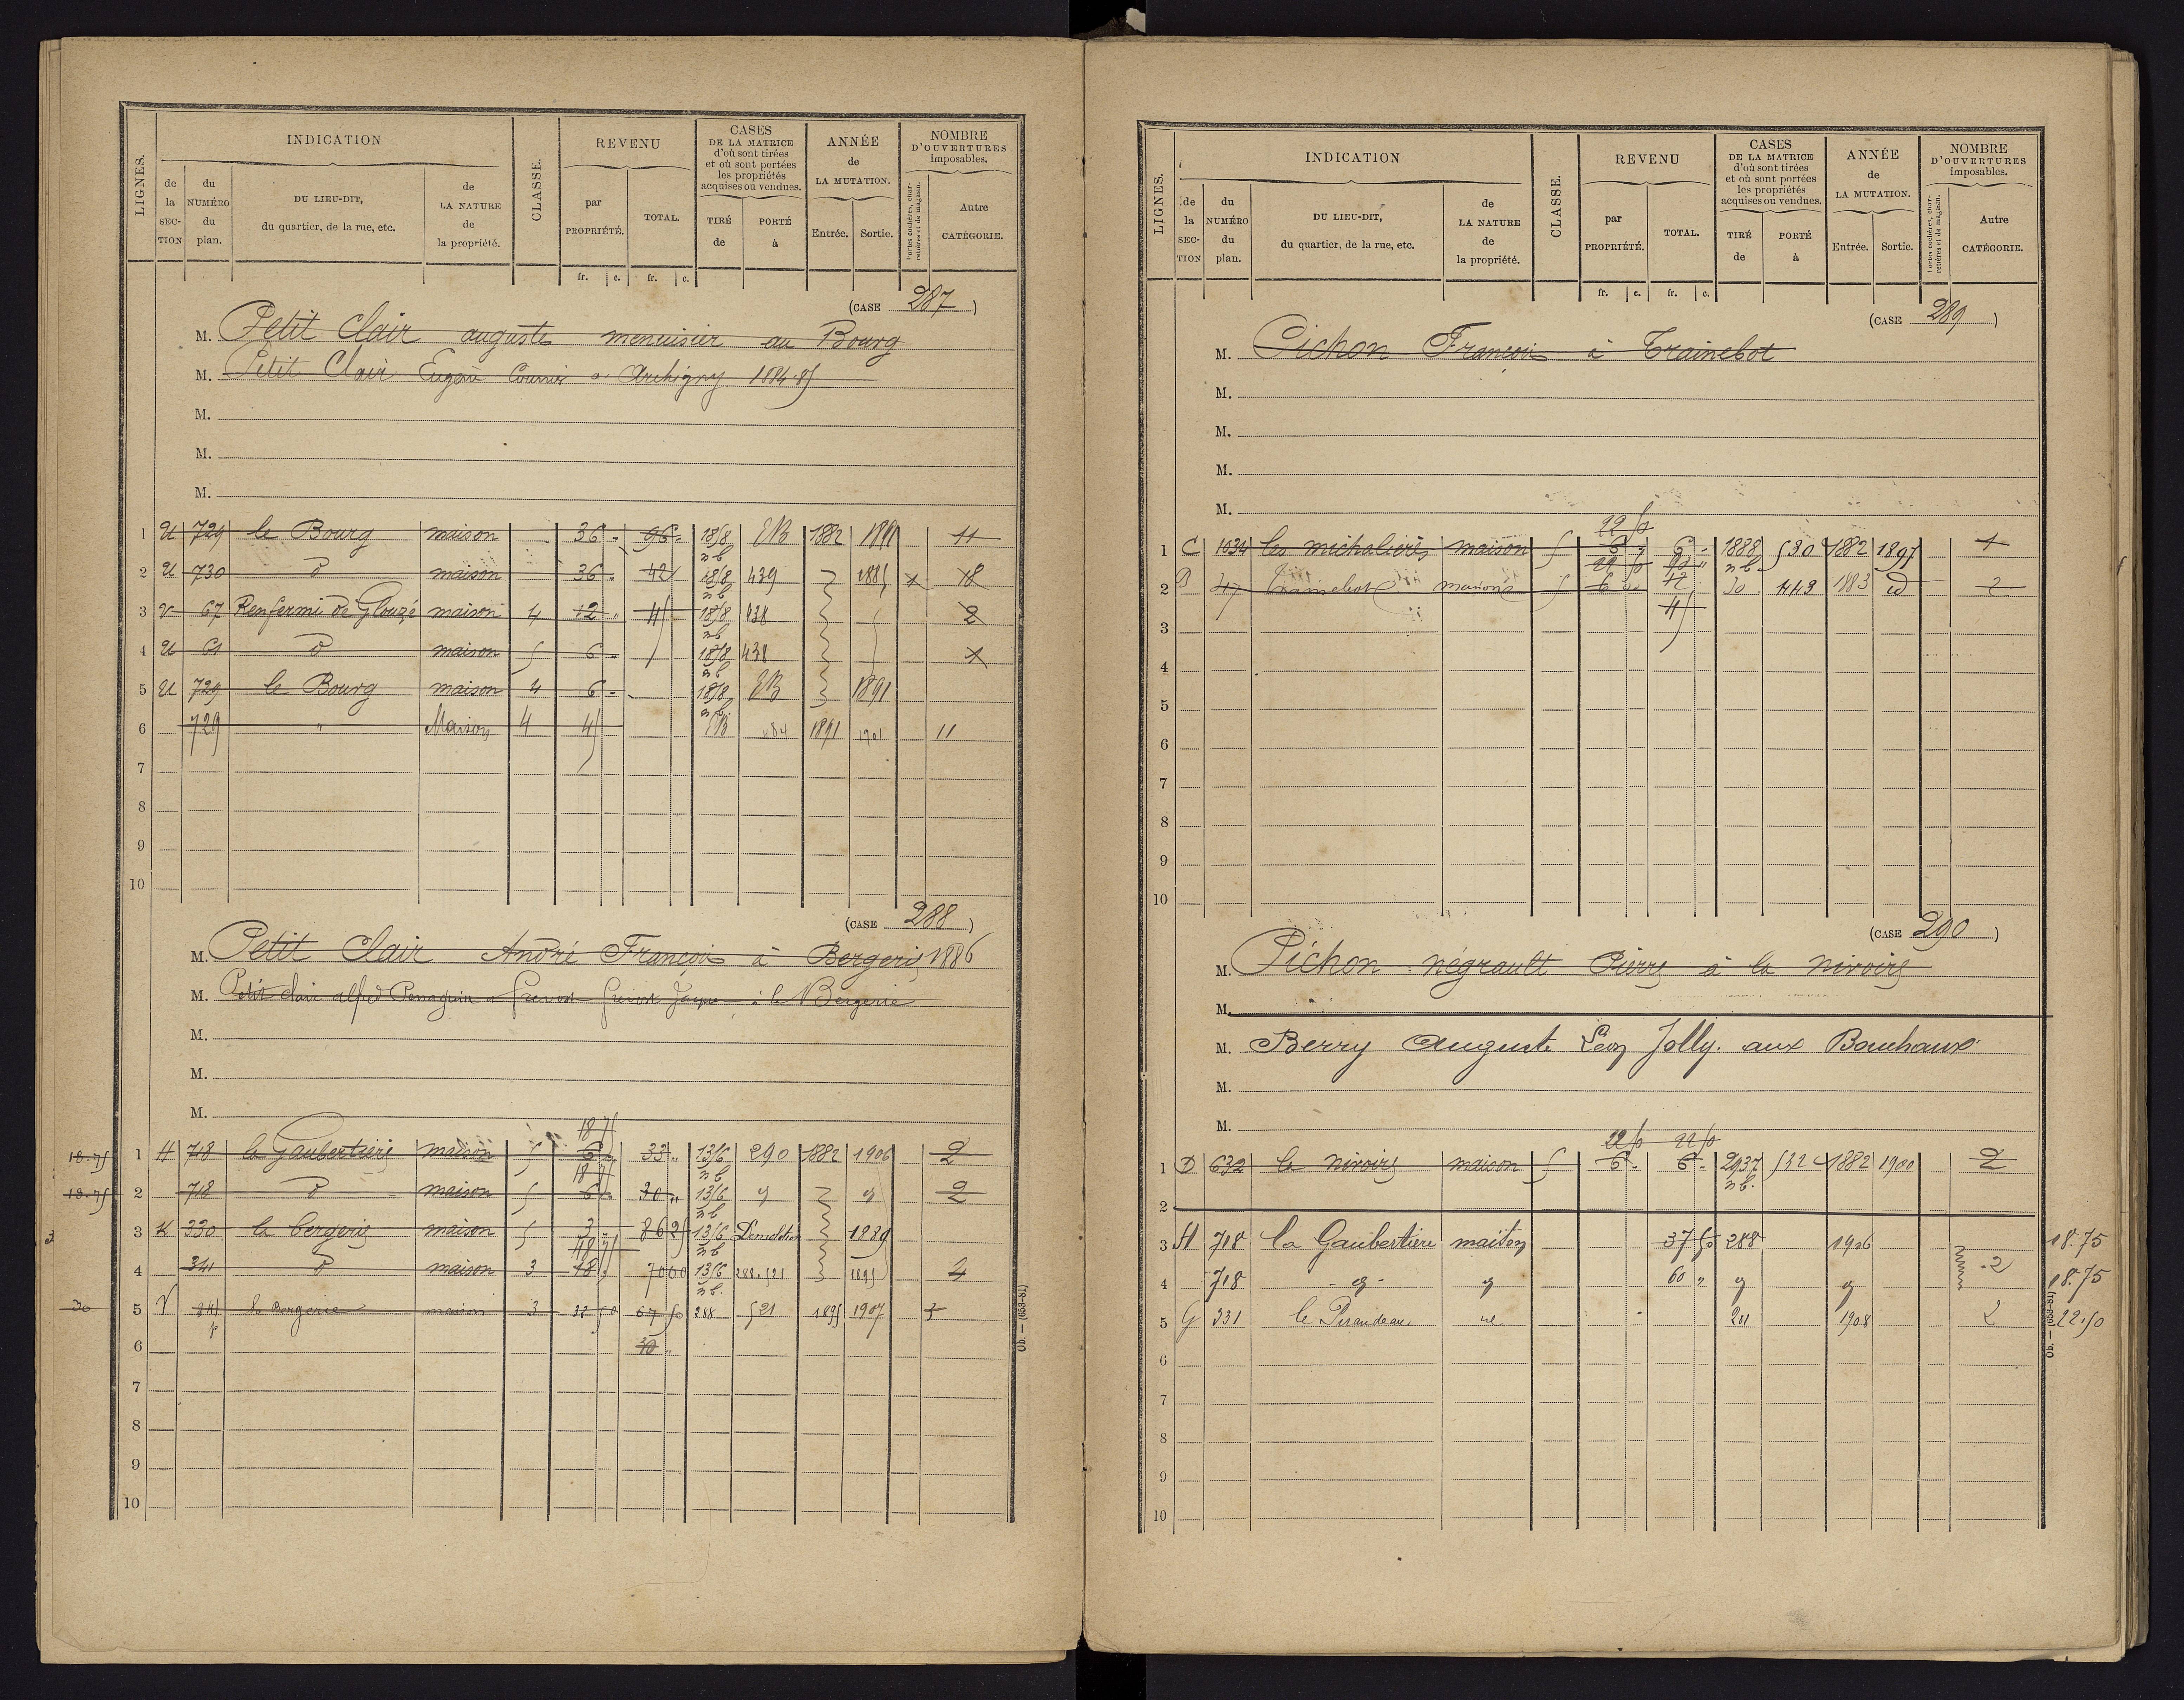 LIGNES.
INDICATION
de la SECTION
du NUMÉRO du plan.
DU LIEU-DIT, du quartier, de la rue, etc.
de LA NATURE de la propriété.
CLASSE.
REVENU
par PROPRIÉTÉ.
TOTAL.
fr. c. fr. c.
CASES DE LA MATRICE d'où sont tirées et où sont portées les propriétés acquises ou vendues.
TIRÉ de
PORTÉ à
ANNÉE de LA MUTATION.
Entrée. Sortie.
NOMBRE D'OUVERTURES imposables.
Portes cochères, charretières et de magasin.
Autre CATÉGORIE.
(CASE 287)
M. Petit Clair auguste menuisier au Bourg
M. Petit Clair Eugène Courrier a Archigny 1884-85
M.
M.
M.
1 U 729 le Bourg maison 36 96 1858 1882 1891 11
2 U 730 d° maison 36 42 1858 439 1885 18
3 V 67 Renfermi de Glouzé maison 4 12 45 1858 438 2
4 U 61 d° maison 5 6 1858 438 1
5 U 729 le Bourg maison 4 6 1858 1891
6 729 " Maison 4 45 484 1891 1901 11
7
8
9
10
(CASE 288)
M. Petit Clair André François à Bergeris 1886
M. Petit clair alfred à la Bergerie
M.
M.
M.
18 75
18.75 1 H 718 la Gaubertière maison 5 6 33 " 1316 290 1882 1906 2
18 75
18.75 2 718 d° maison 5 6 30 " 1316 2
3 K 330 la bergeris maison 5 3 8625 1316 Demolition 1889
4 341 d° maison 3 18 7000 1316 288.521 1895 4
30 5 V 341 p la Bergerie maison 3 37 50 67 50 288 521 1895 1907 3
6 30
7
8
9
10
Ob. — (653-81)
LIGNES.
INDICATION
de la SECTION
du NUMÉRO du plan.
DU LIEU-DIT, du quartier, de la rue, etc.
de LA NATURE de la propriété.
CLASSE.
REVENU
par PROPRIÉTÉ.
TOTAL.
fr. c. fr. c.
CASES DE LA MATRICE d'où sont tirées et où sont portées les propriétés acquises ou vendues.
TIRÉ de
PORTÉ à
ANNÉE de LA MUTATION.
Entrée. Sortie.
NOMBRE D'OUVERTURES imposables.
Portes cochères, charretières et de magasin.
Autre CATÉGORIE.
(CASE 289)
M. Pichon François à Trainebot
M.
M.
M.
M.
22 50
1 C 1034 les michalières maison 5 6 6 1888 530 1882 1897 1
2 B 47 Trainebot maison 5 6 12 443 1883 id 2
3 45
4
5
6
7
8
9
10
(CASE 290)
M. Pichon négrault Pierre à la nivoire
M.
M. Berry Auguste Léon Jolly. aux Bouchaux
M.
M.
22 50 22 50
1 D 632 la nivoire maison 5 6 6 2937 532 1882 1900 2
2
3 H 718 la Gaubertière maison 37 50 288 1906 18.75
4 718 60 " 2 18.75
5 G 331 1908 2 22.50
6
7
8
9
10
Ob. — (653-81)